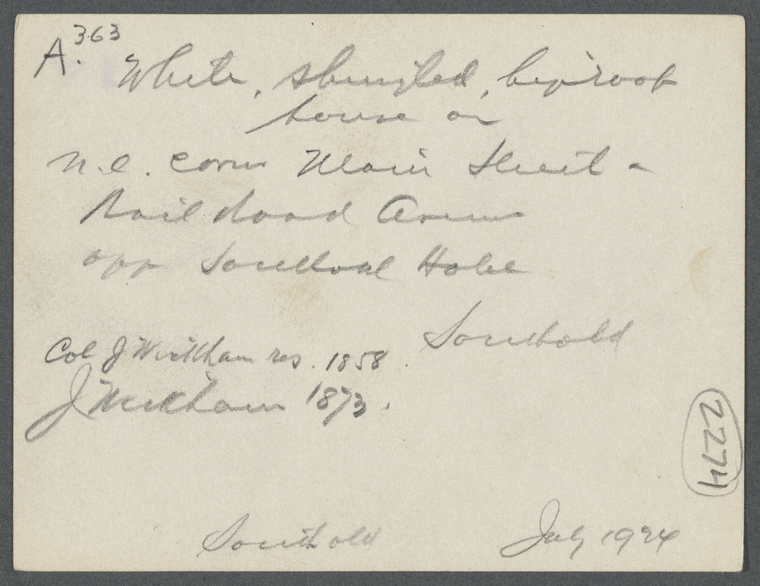 A. 363
White, shingled, hip roof
house on
n.e. corner Main Street &
Rail Road Avenue
opp Southold Hotel
Southold
Col J Wickham res. 1858
J Wickham 1873.
2274
Southold July 1924